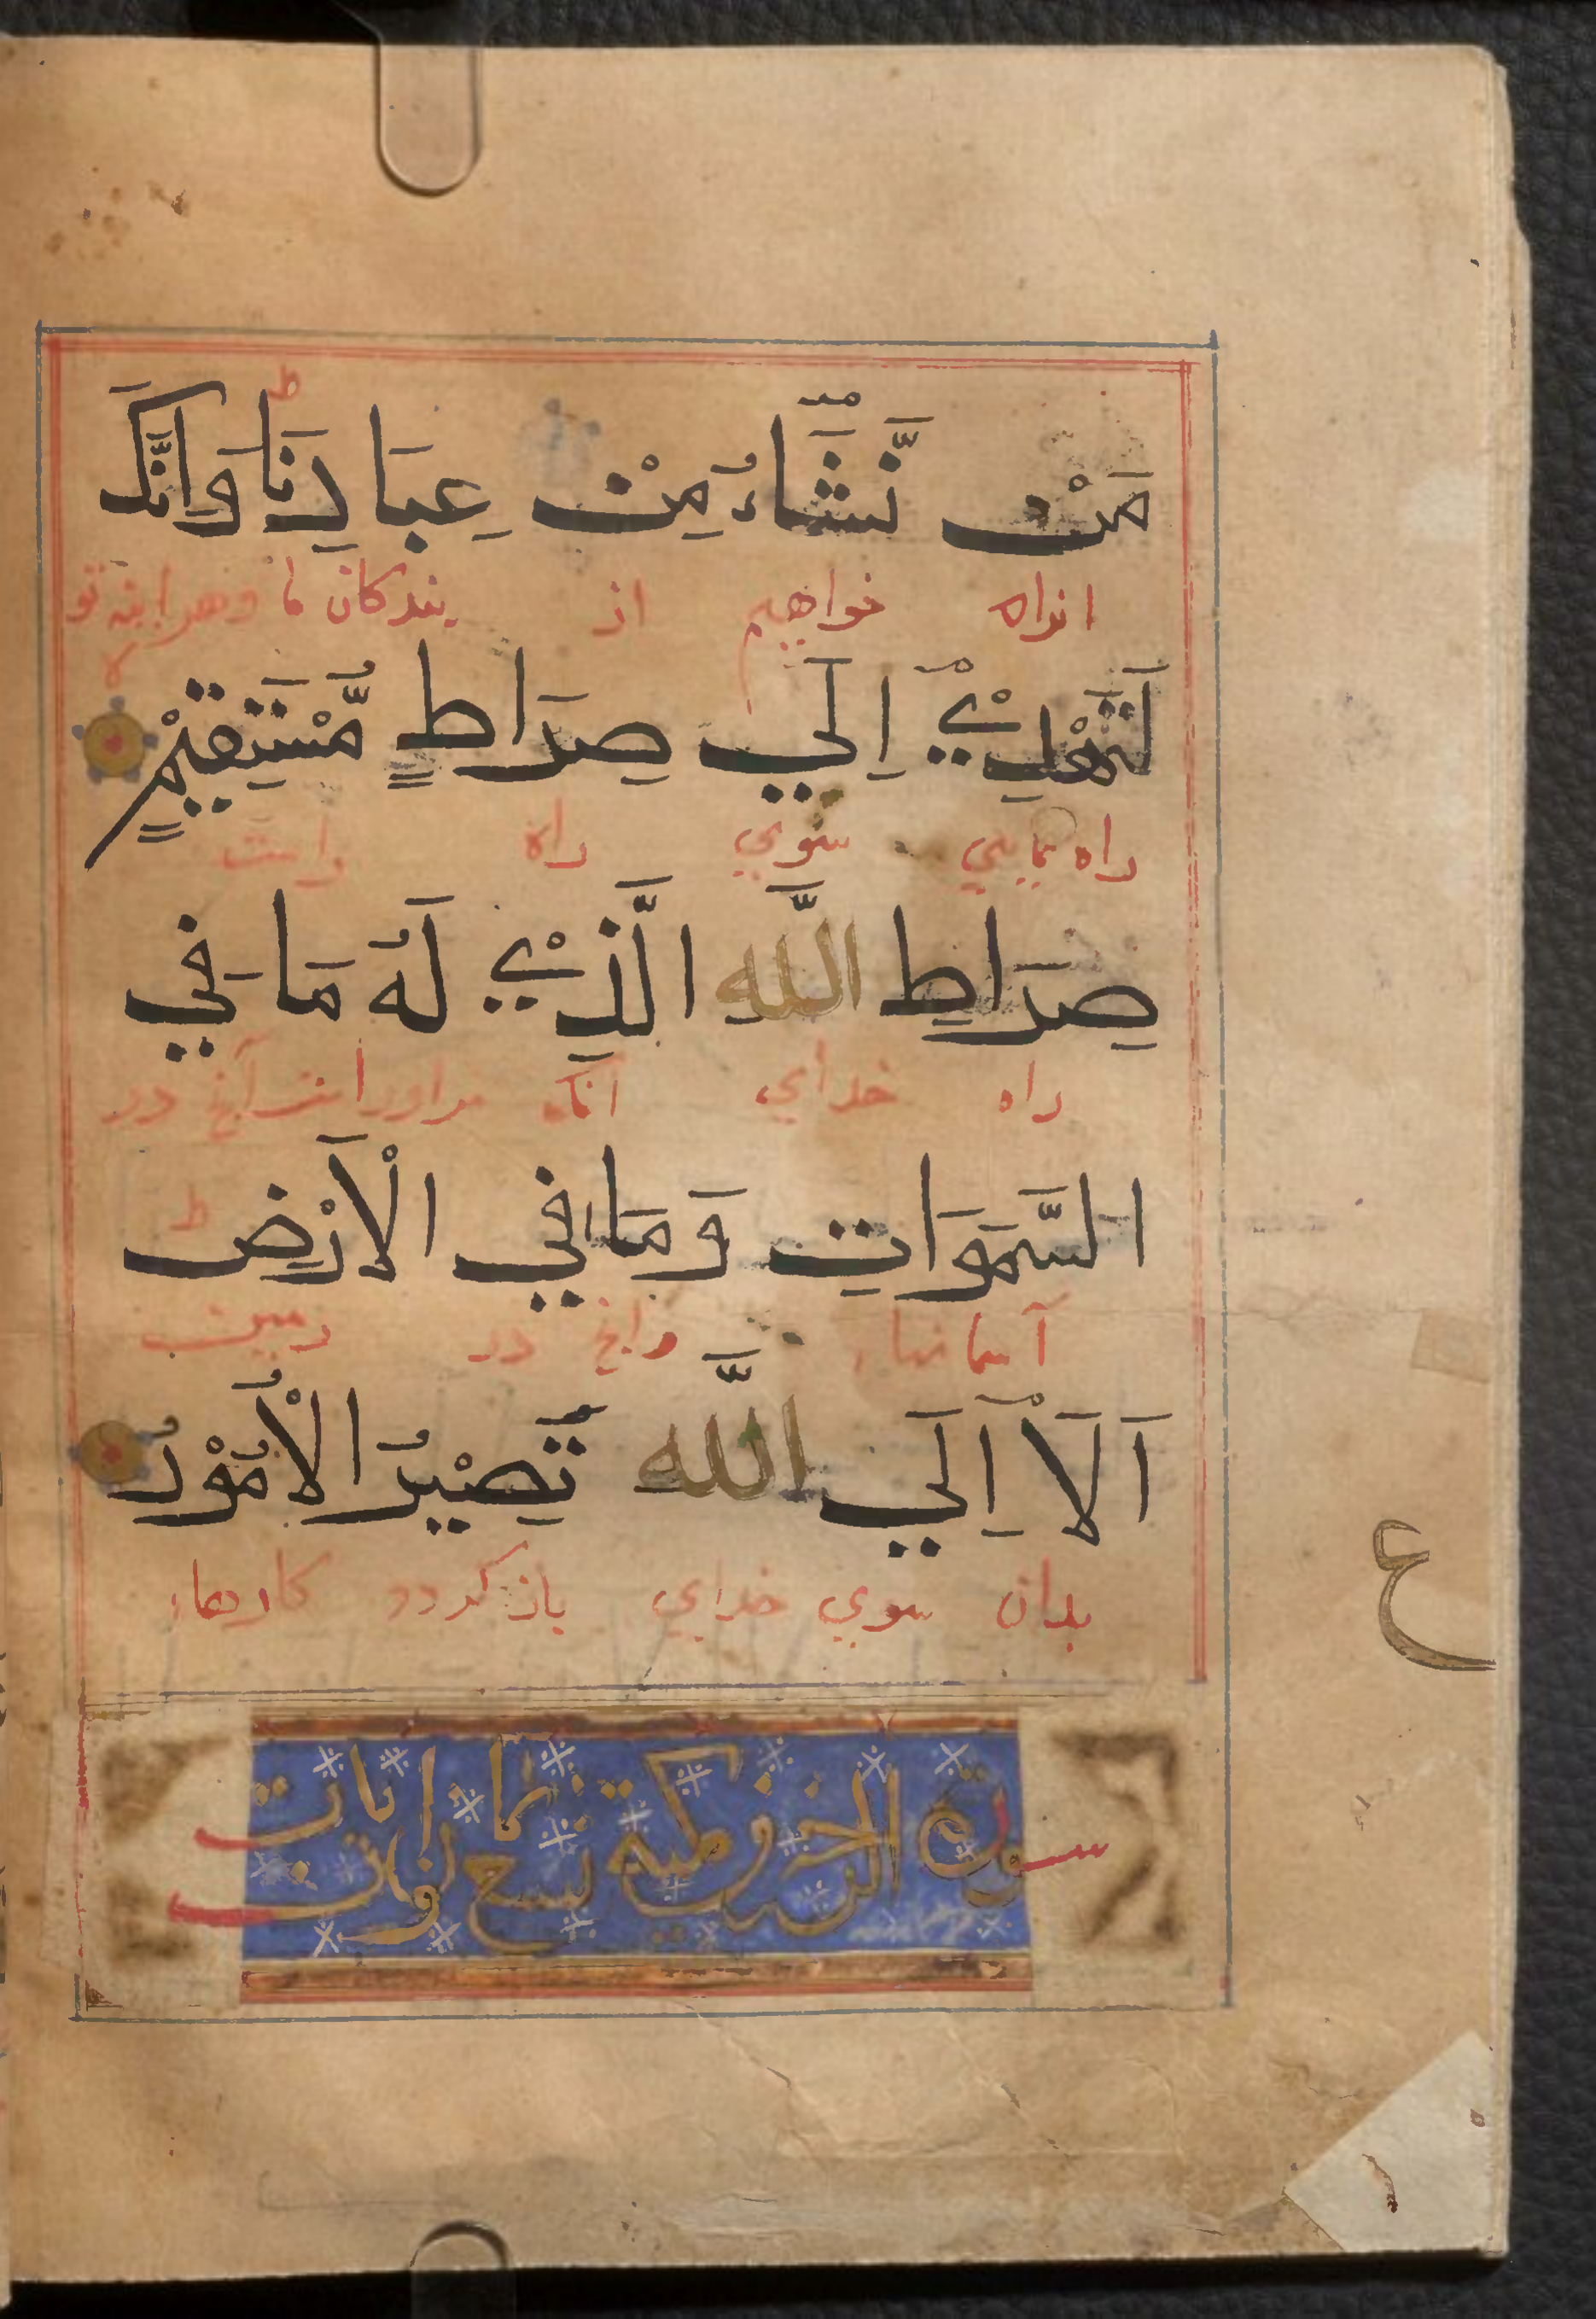 مَنْ نَّشَآءُ مِنْ عِبَادِنَا وَاِنَّكَ
انراه خواهیم از بندكان ما وهراینه تو
لَتَهْدِيْٓ اِلَي صِرَاطٍ مُّسْتَقِيْمٍ
راه نمایی سوي راه راست
صِرَاطِ اللَّه الَّذِيْ لَهُ مَا فِي
راه خداي آنكه مراوراست آنچ در
السَّمَوَاتِ وَمَا فِي الْاَرْضِ
آسمانهاء وانچ در زمین
اَلَآ اِلَي اللَّه تَصِيْرُ الْاُمُوْرُ
بدان سوي خداي باز كردد كارهاء
ع
سورة الزخرف مكية ثمانيات
تسع